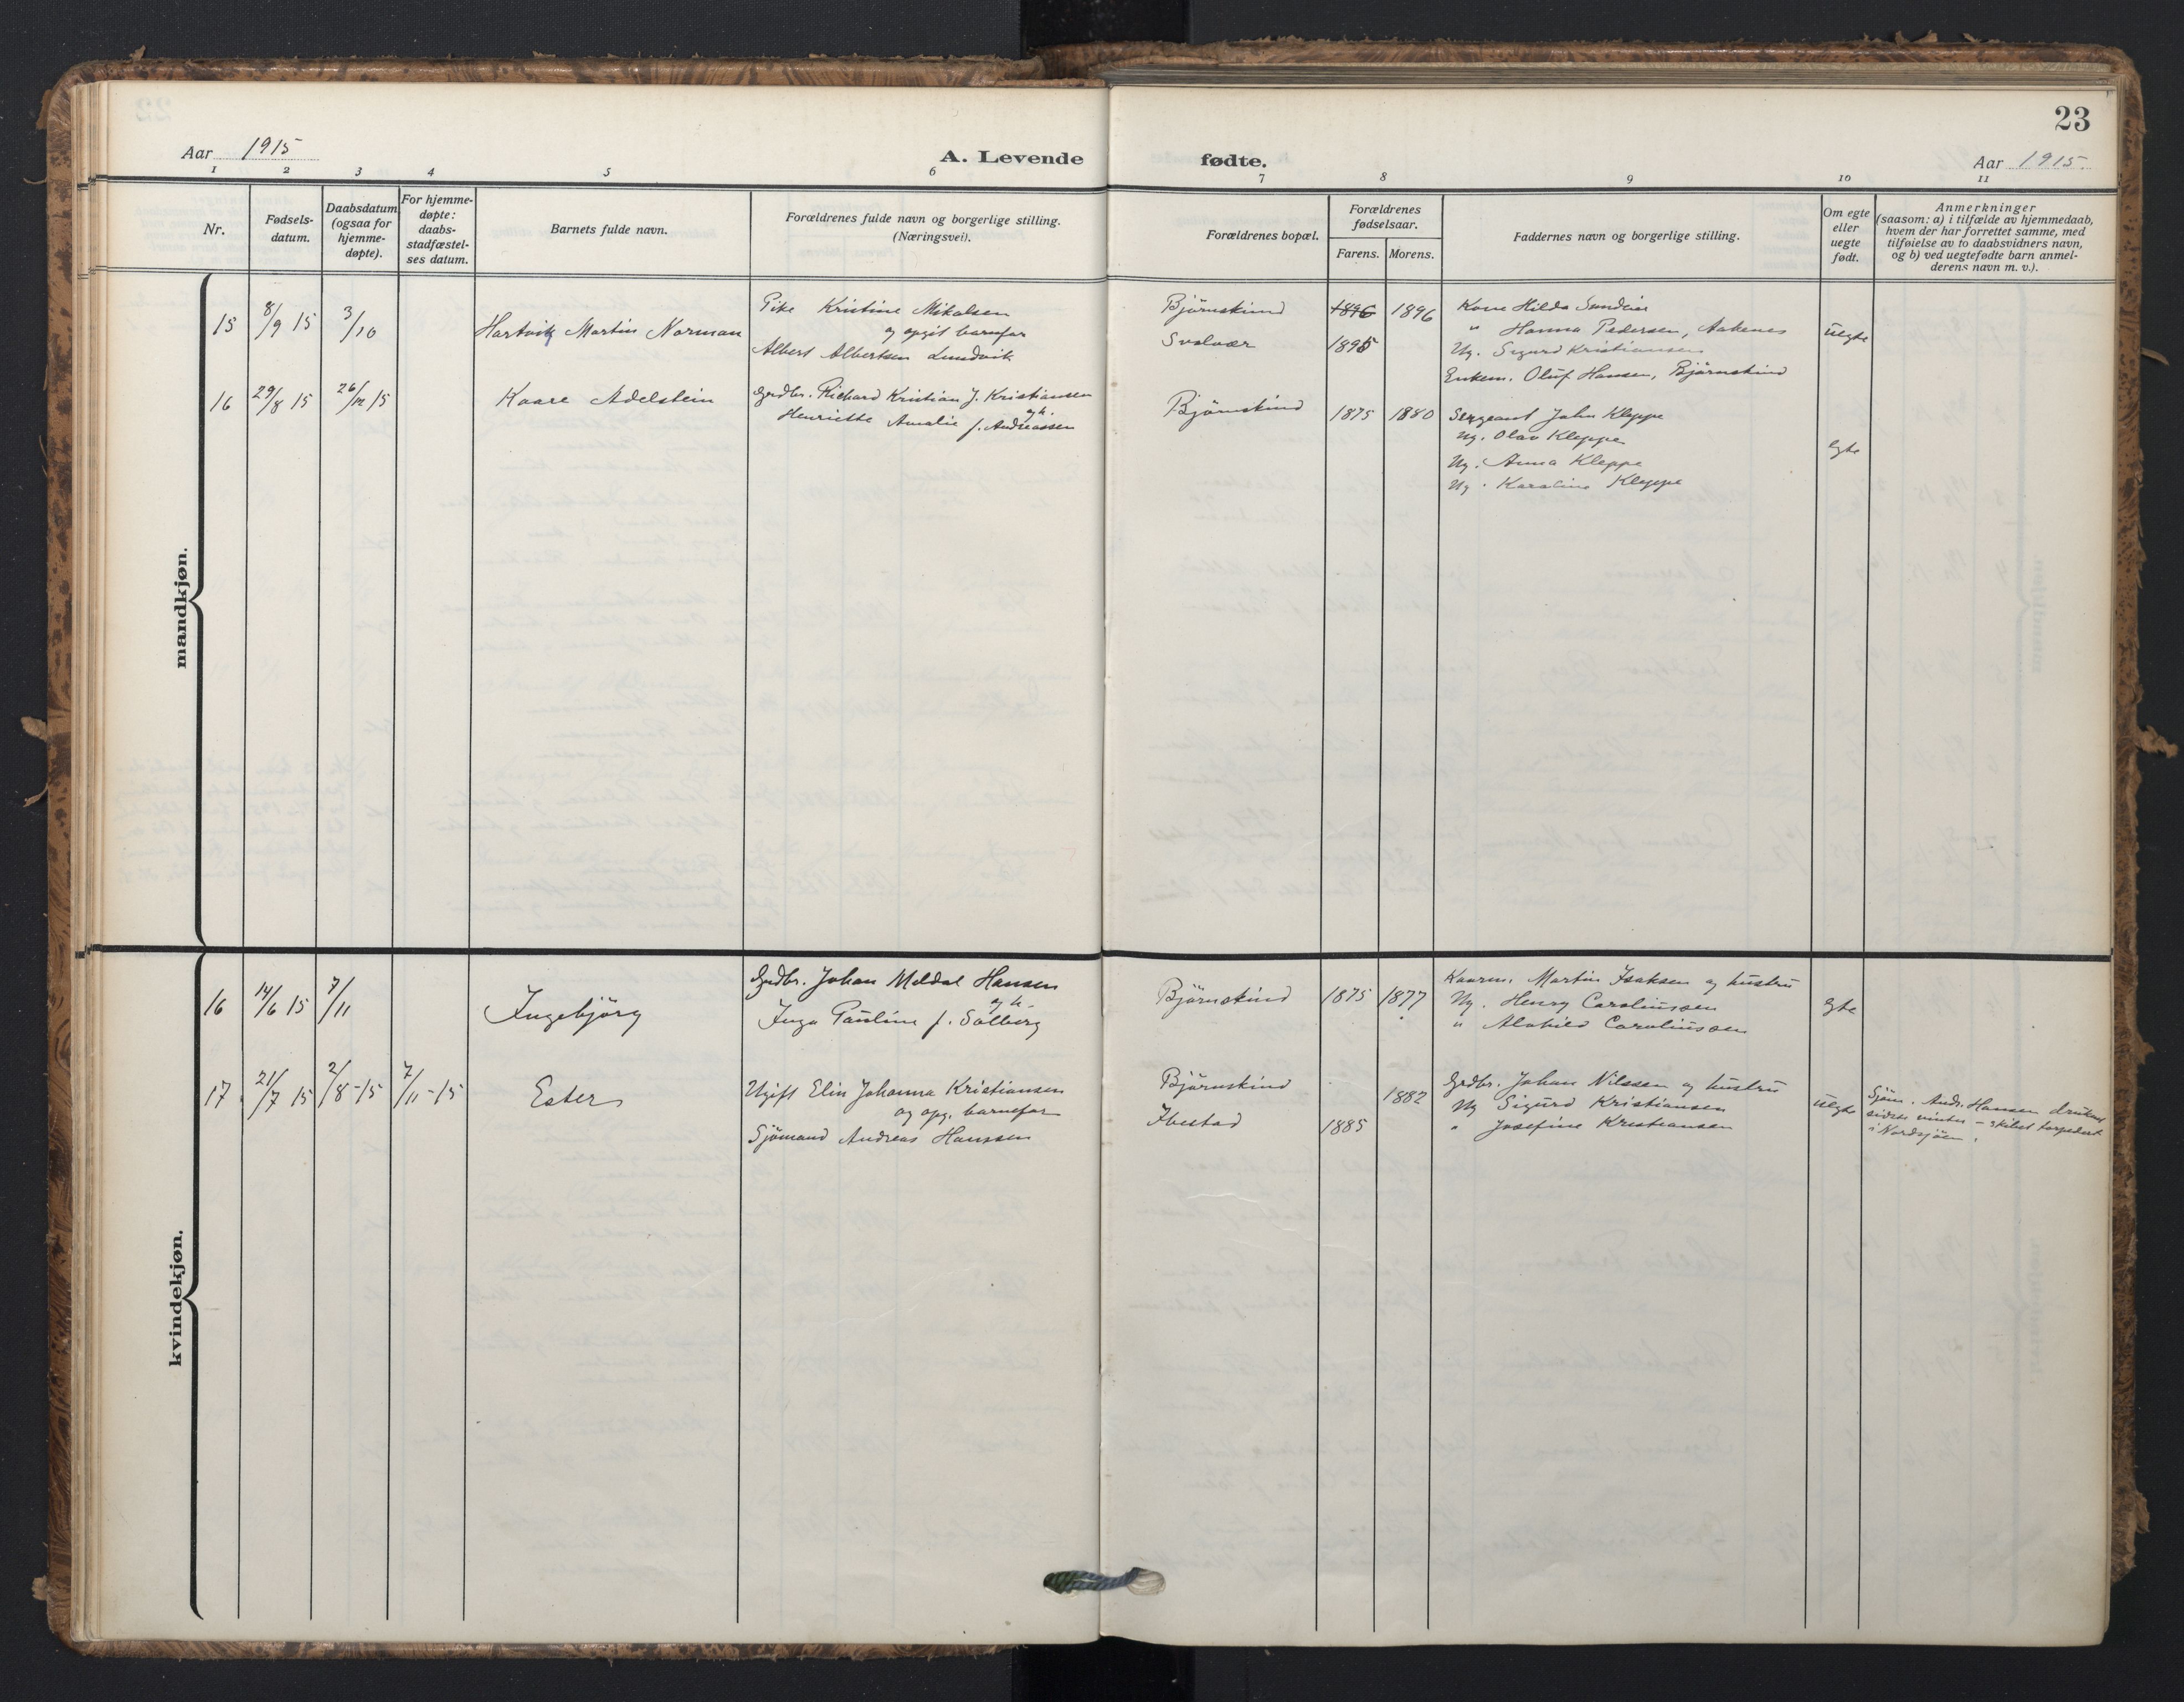 23
Aar 1915
A. Levende fødte.
Aar 1915
1 2 3 4 5 6 7 8 9 10 11
Nr.
Fødsels-
datum.
Daabsdatum
(ogsaa for
hjemme-
døpte).
For hjemme-
døpte:
daabs-
stadfæstel-
ses datum.
Barnets fulde navn.
Forældrenes fulde navn og borgerlige stilling.
(Næringsvei).
Forældrenes bopæl.
Forældrenes
fødselsaar.
Farens. Morens.
Faddernes navn og borgerlige stilling.
Om egte
eller
uegte
født.
Anmerkninger
(saasom: a) i tilfælde av hjemmedaab,
hvem der har forrettet samme, med
tilføielse av to daabsvidners navn,
og b) ved uegtefødte barn anmel-
derens navn m. v.).
mandkjøn.
15 8/9 15 3/10 Hartvik Martin Norman
Pike Kristine Mikalsen
og opgit barnefar
Albert Albertsen Lundvik
Björnskind 1896 1896
Svolvær 1895
Kone Hilda
" Hanna Pedersen, Aakenes
Ug. Sigurd Kristiansen
Enkem. Oluf Hansen, Björnskind
uegte
16 29/8 15 26/12 15 Kaare Adelstein
Grdbr. Richard Kristian J. Kristiansen
og h.
Henriette Amalie f. Andreassen
Björnskind 1875 1880
Sergeant John Kleppe
Ug. Olav Kleppe
Ug. Anna Kleppe
Ug. Karoline Kleppe
egte
kvindekjøn.
16 14/6 15 7/11 Ingebjörg
Grdbr. Johan Meldal Hansen
og h.
Inga Pauline f. Solberg
Björnskind 1875 1877
Kaarm. Martin Isaksen og hustru
Ug. Henry Caroliussen
" Alvhild Caroliussen
egte
17 21/7 15 2/8-15 7/11-15 Ester
Ugift Elin Johanna Kristiansen
og opg. barnefar
Sjömand Andreas Hanssen
Björnskind 1882
Ibestad 1885
Grdbr. Johan Nilssen og hustru
Ug Sigurd Kristiansen
" Josefine Kristiansen
uegte
Sjöm. Andr. Hansen druknet
sidste vinter – skibet torpedert
i Nordsjöen.